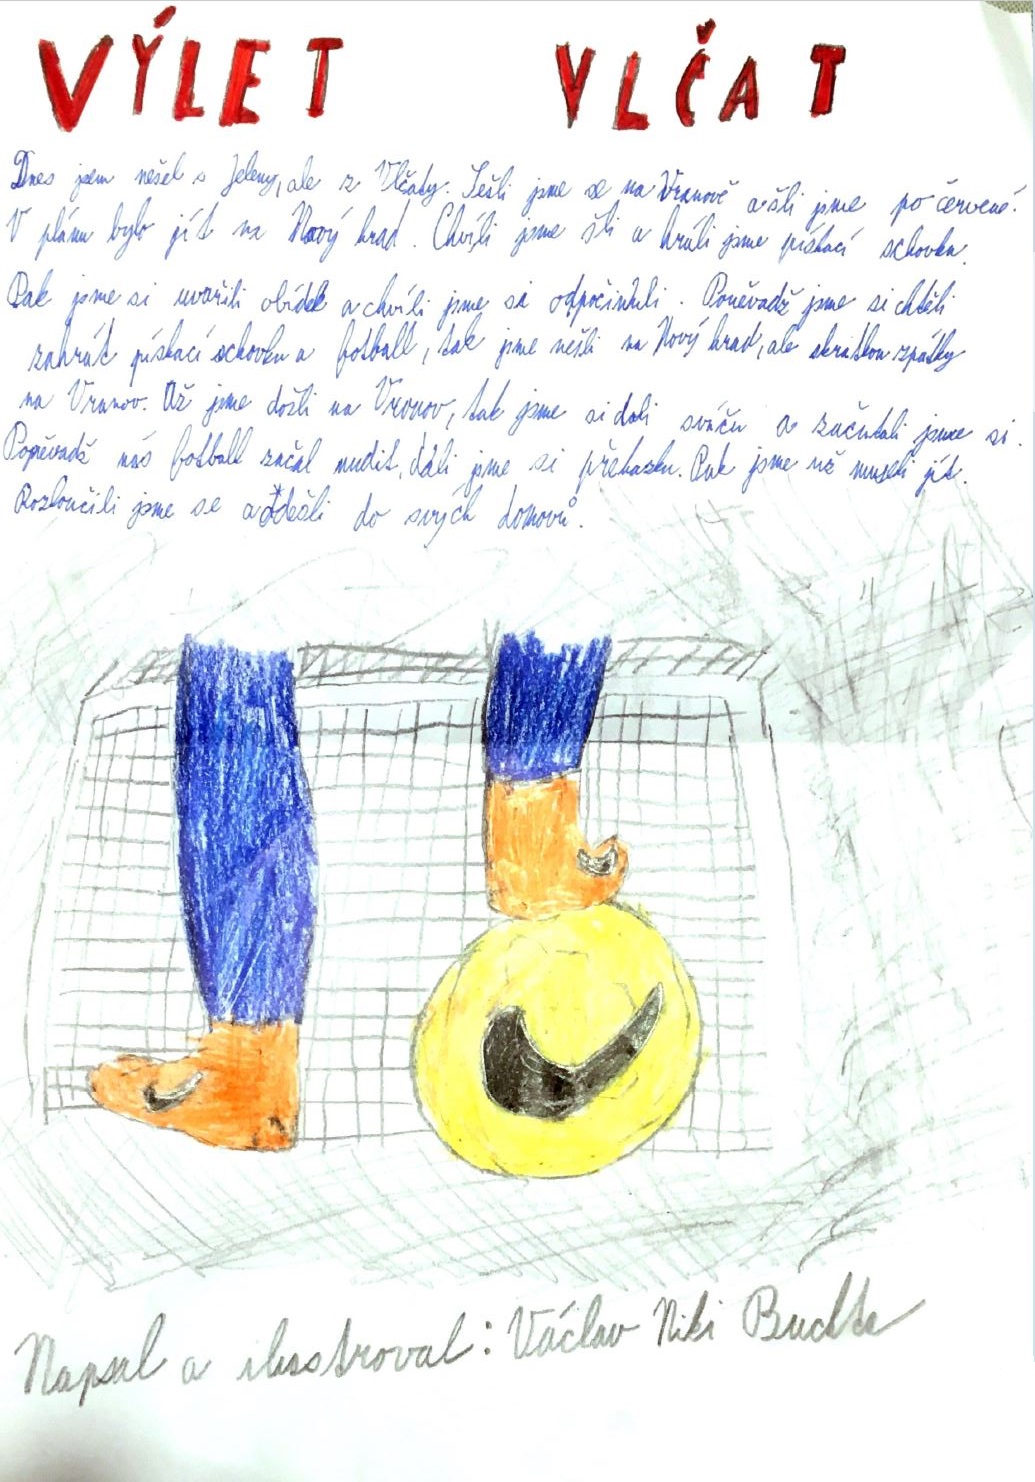 VÝLET VLČAT
Dnes jsem nešel s Jeleny, ale z Vlčaty. Sešli jsme se na Vranově a šli jsme po červené.
V plánu bylo jít na Nový hrad. Chvíli jsme šli a hráli jsme pískací schovku.
Pak jsme si uvařili obídek a chvíli jsme si odpočinuli. Poněvadž jsme si chtěli
zahrát pískací schovku a fotball, tak jsme nešli na Nový hrad, ale zkratkou zpátky
na Vranov. Až jsme došli na Vranov, tak jsme si dali sváču a začutali jsme si.
Poněvadž nás fotball začal nudit, dali jsme si přehazku. Pak jsme už museli jít.
Rozloučili jsme se a odešli do svých domovů.
Napsal a ilustroval: Václav Niki Buchta